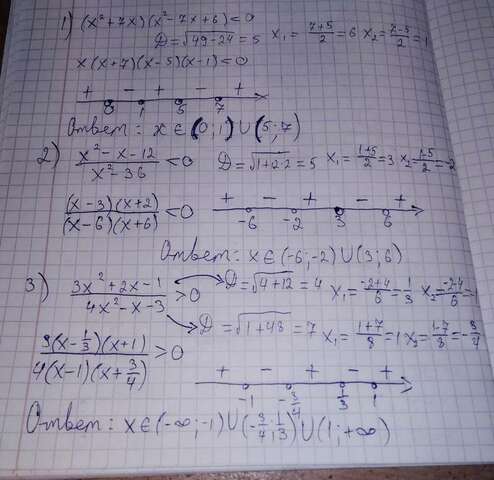 1) (x² + 7x)(x² - 7x + 6) < 0
D = √49-24 = 5 x₁ = (7+5)/2 = 6 x₂ = (7-5)/2 = 1
x(x+7)(x-5)(x-1) < 0
+ - + - +
0 1 5 7 x
Ответ: x ∈ (0; 1) ∪ (5; 7)
2) (x² - x - 12)/(x² - 36) < 0 D = √1+2·2 = 5 x₁ = (1+5)/2 = 3 x₂ = (1-5)/2 = -2
((x-3)(x+2))/((x-6)(x+6)) < 0
+ - + - +
-6 -2 3 6
Ответ: x ∈ (-6; -2) ∪ (3; 6)
3) (3x² + 2x - 1)/(4x² - x - 3) > 0 D = √4+12 = 4 x₁ = (-2+4)/6 = 1/3 x₂ = (-2-4)/6 = -1
D = √1+48 = 7 x₁ = (1+7)/8 = 1 x₂ = (1-7)/8 = -3/4
(3(x-1/3)(x+1))/(4(x-1)(x+3/4)) > 0
+ - + - +
-1 -3/4 1/3 1
Ответ: x ∈ (-∞; -1) ∪ (-3/4; 1/3) ∪ (1; +∞)